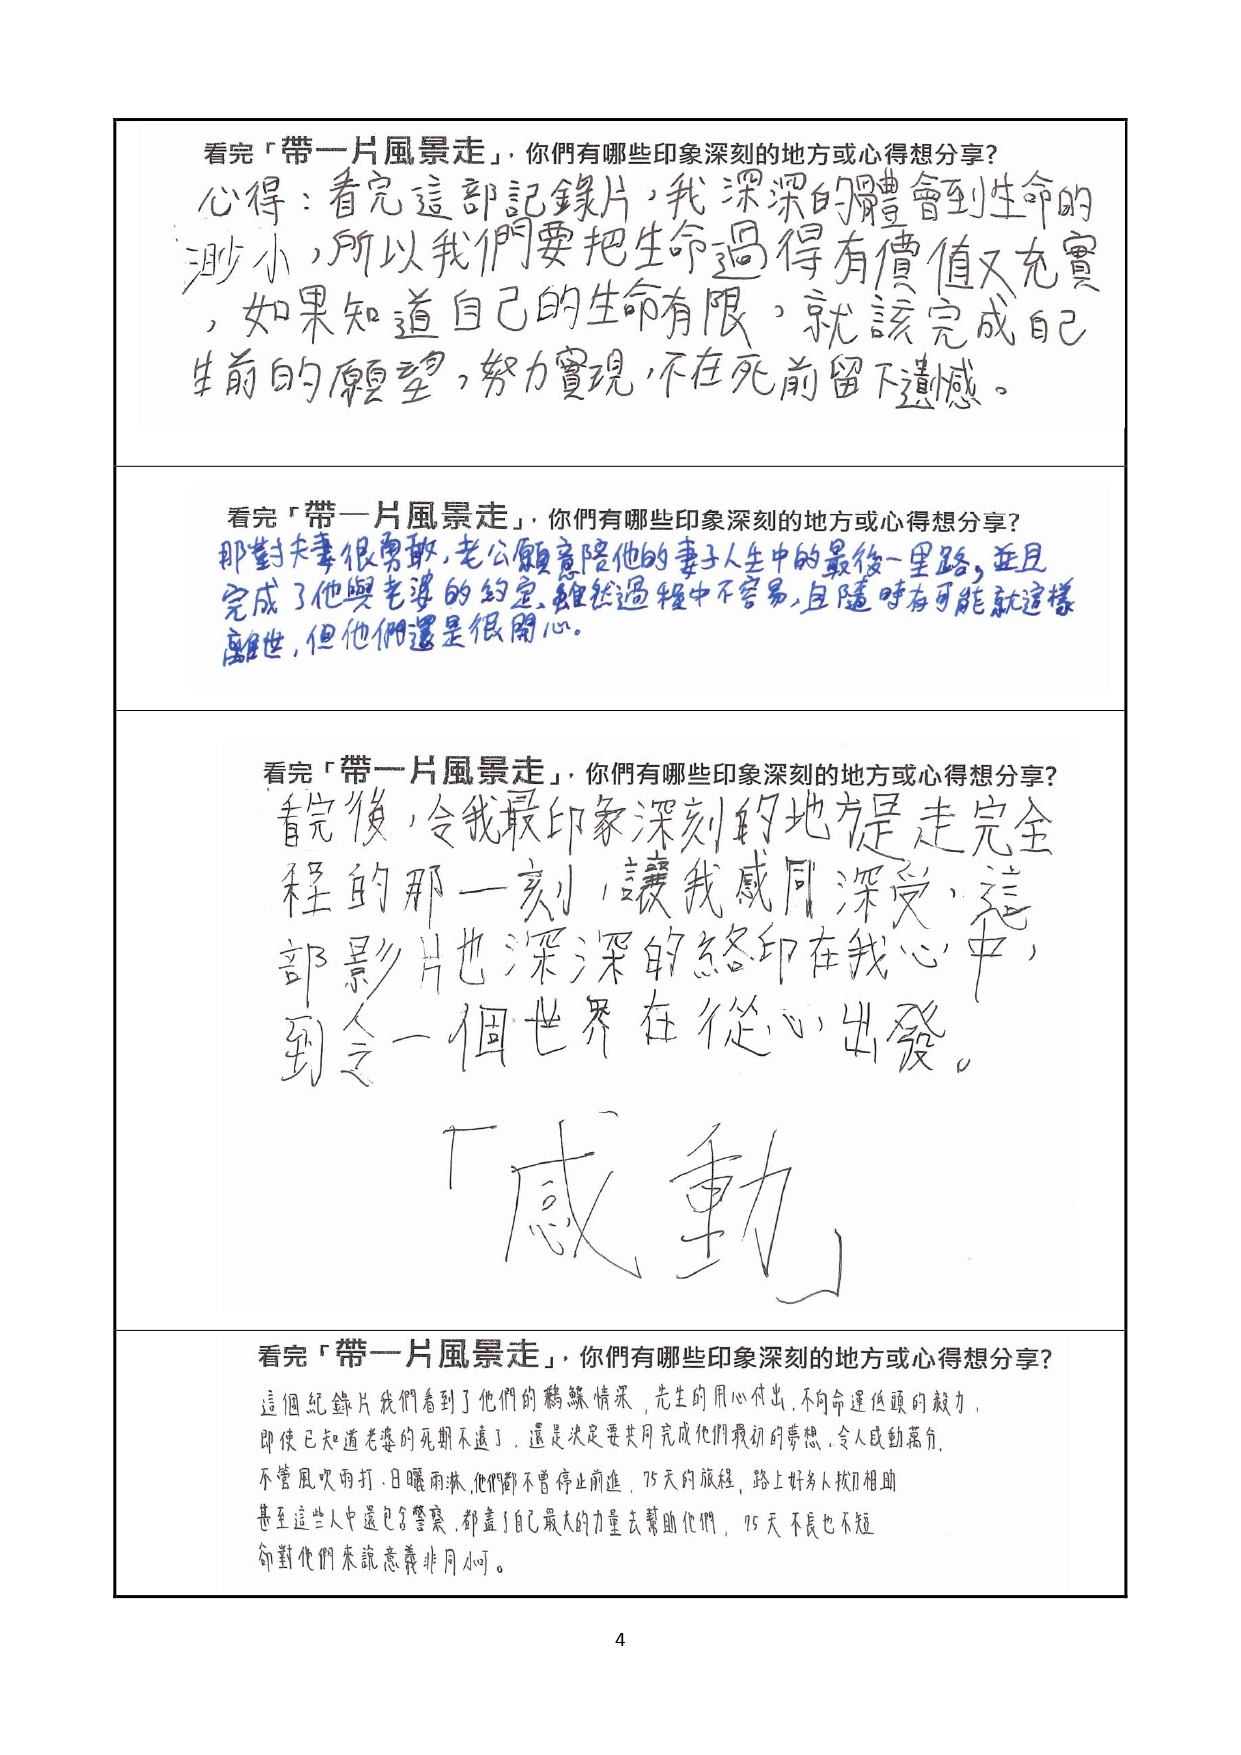 看完「帶一片風景走」，你們有哪些印象深刻的地方或心得想分享?
心得：看完這部記錄片，我深深的體會到生命的
渺小，所以我們要把生命過得有價值又充實
，如果知道自己的生命有限，就該完成自己
生前的願望，努力實現，不在死前留下遺憾。
看完「帶一片風景走」，你們有哪些印象深刻的地方或心得想分享?
那對夫妻很勇敢，老公願意陪他的妻子人生中的最後一里路，並且
完成了他與老婆的約定、雖然過程中不容易，且隨時有可能就這樣
離世，但他們還是很開心。
看完「帶一片風景走」，你們有哪些印象深刻的地方或心得想分享?
看完後，令我最印象深刻的地方是走完全
程的那一刻，讓我感同深受，這
部影片也深深的絡印在我心中，
到令一個世界在從心出發。
「感動」
看完「帶一片風景走」，你們有哪些印象深刻的地方或心得想分享?
這個紀錄片我們看到了他們的鶼鰈情深，先生的用心付出，不向命運低頭的毅力，
即使已知道老婆的死期不遠了，還是決定要共同完成他們最初的夢想，令人感動萬分，
不管風吹雨打、日曬雨淋，他們都不曾停止前進，75天的旅程，路上好多人拔刀相助
甚至這些人中還包含警察，都盡了自己最大的力量去幫助他們，75天不長也不短
卻對他們來說意義非同小可。
4